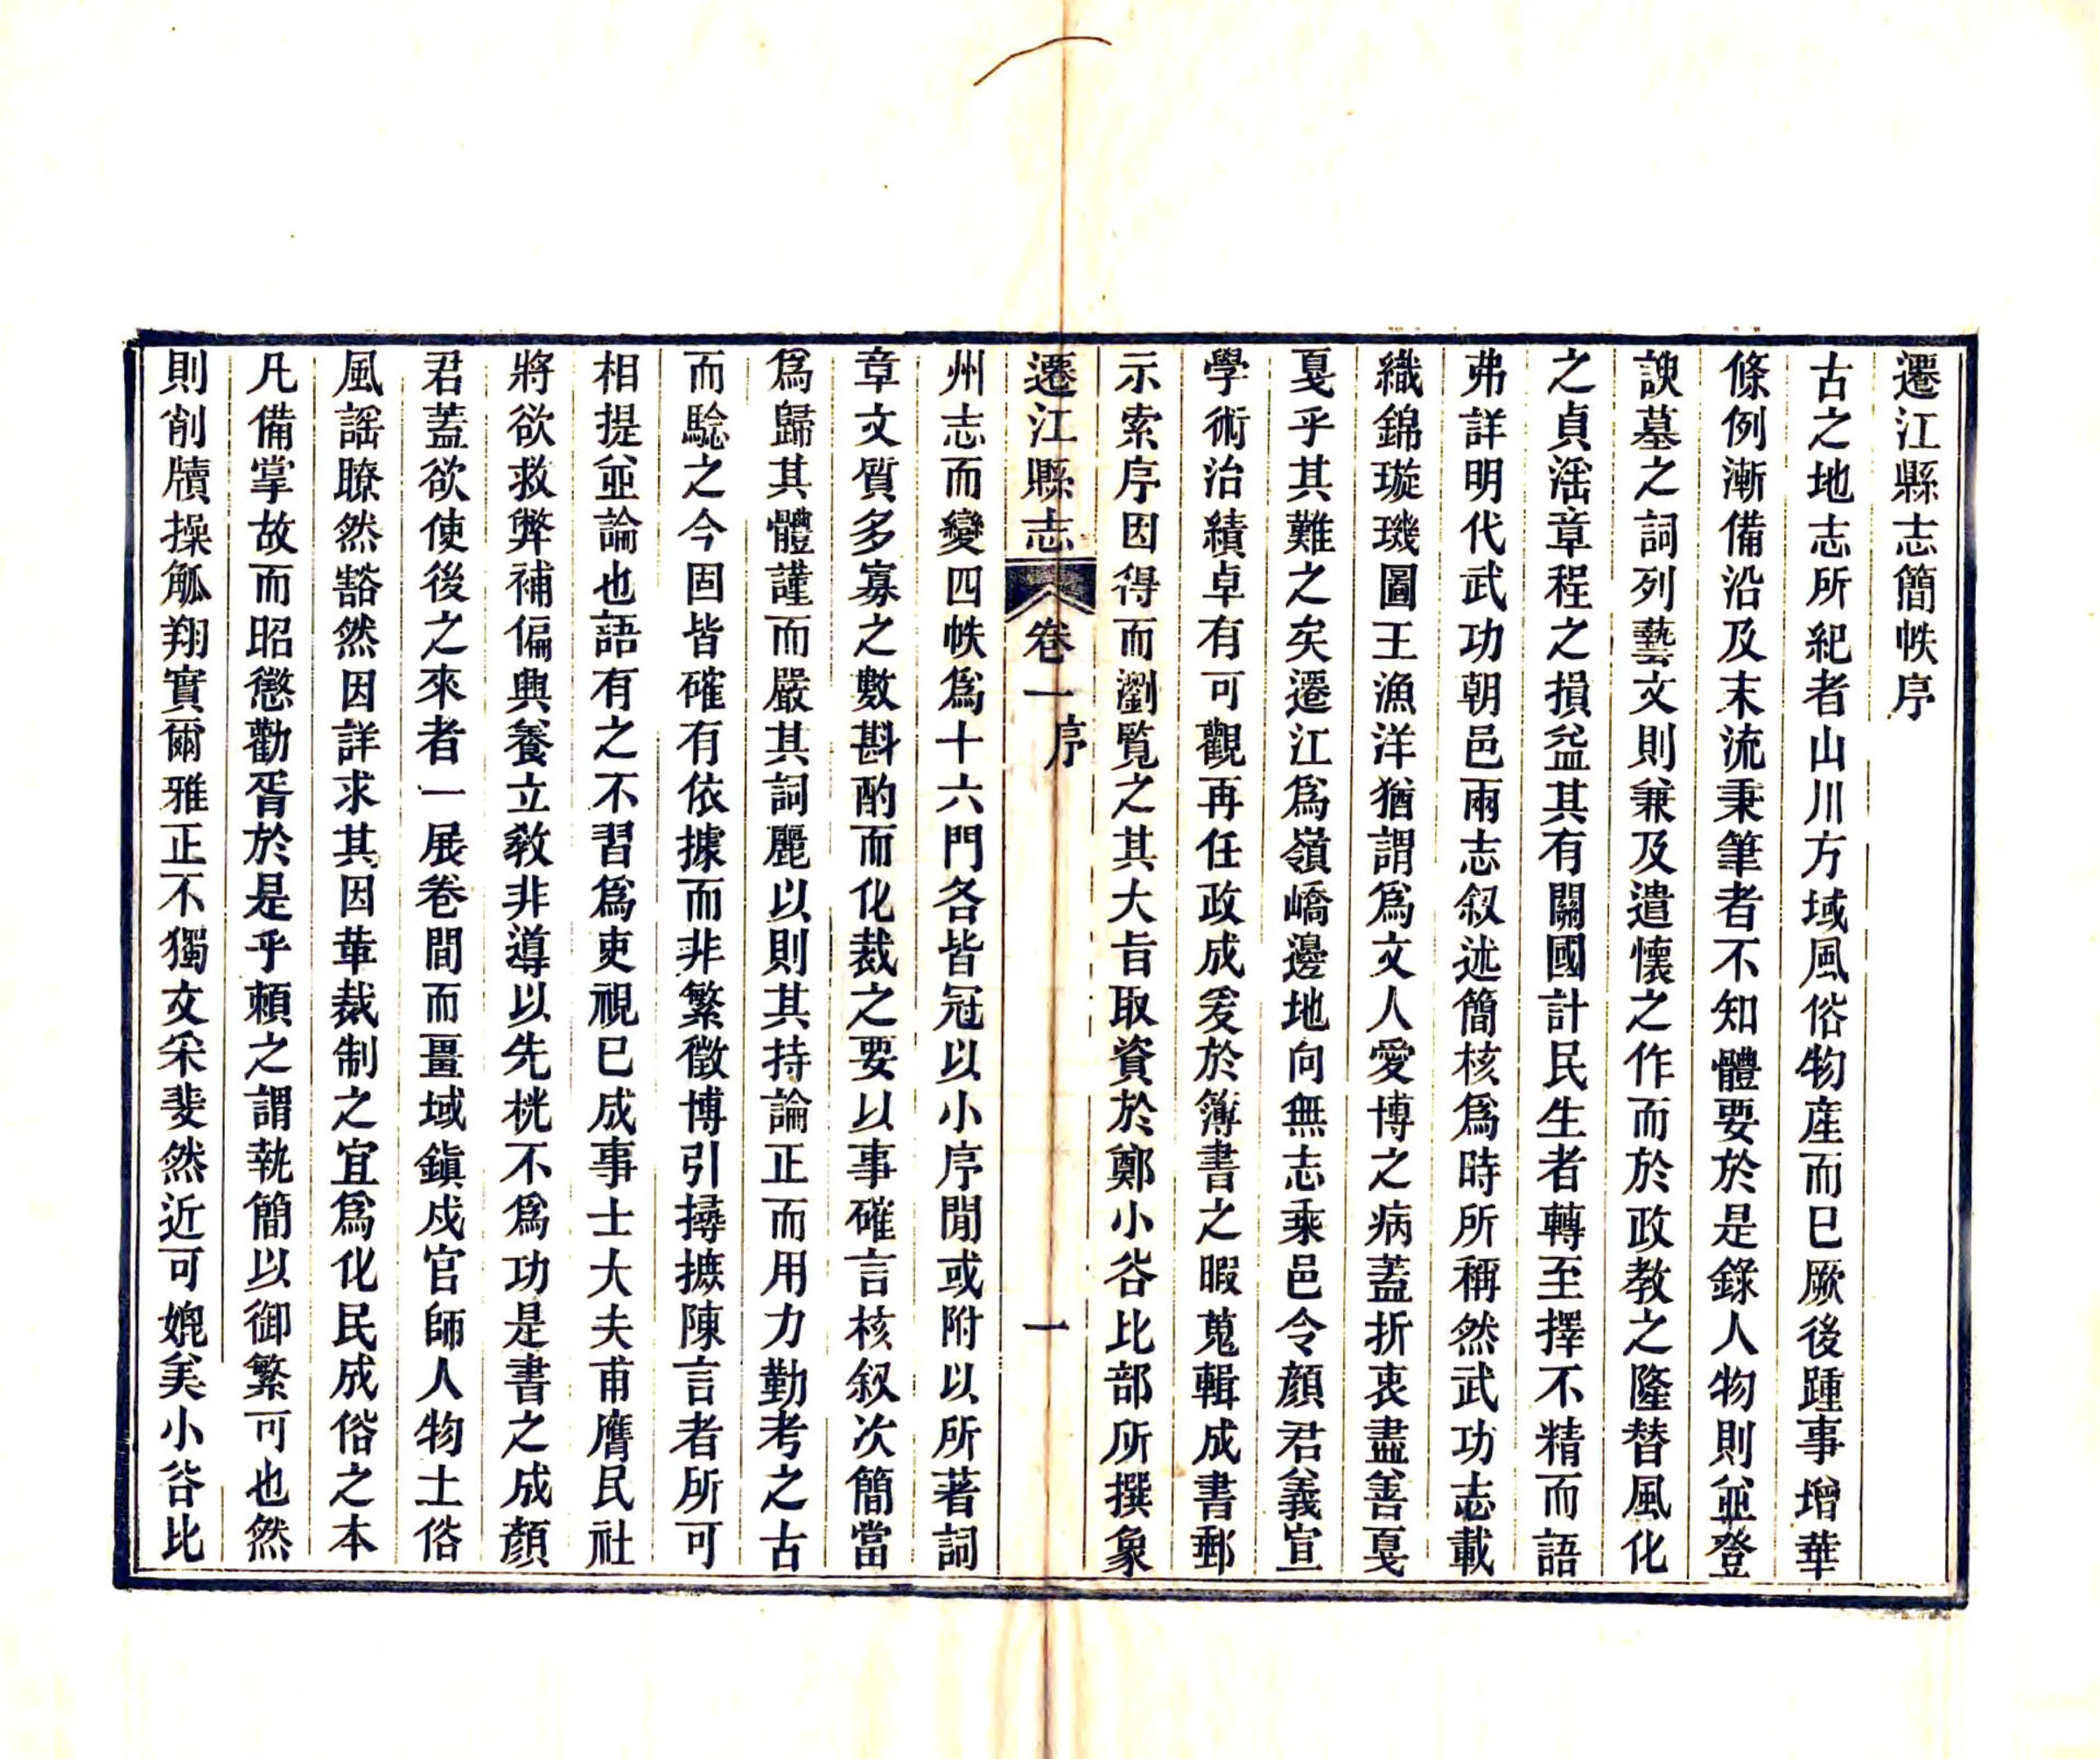 遷江縣志簡帙序
古之地志所紀者山川方域風俗物産而已厥後踵事增華
條例漸備沿及末流秉筆者不知體要於是錄人物則並登
諛墓之詞列藝文則兼及遣懷之作而於政教之隆替風化
之貞滛章程之損益其有關國計民生者轉至擇不精而語
弗詳明代武功朝邑兩志叙述簡核爲時所稱然武功志載
織錦璇璣圖王漁洋猶謂爲文人愛博之病蓋折衷盡善戛
戛乎其難之矣遷江爲嶺嶠邊地向無志乘邑令顏君義宣
學術治績卓有可觀再任政成爰於簿書之暇蒐輯成書郵
示索序因得而瀏覽之其大旨取資於鄭小谷比部所撰象
遷江縣志 卷一 序 一
州志而變四帙爲十六門各皆冠以小序閒或附以所著詞
章文質多寡之數斟酌而化裁之要以事確言核叙次簡當
爲歸其體謹而嚴其詞麗以則其持論正而用力勤考之古
而騐之今固皆確有依據而非繁徵博引撏摭陳言者所可
相提並論也語有之不習爲吏視已成事士大夫甫膺民社
將欲救弊補偏興養立敎非導以先桄不爲功是書之成顏
君蓋欲使後之來者一展卷間而畺域鎭戍官師人物土俗
風謡瞭然豁然因詳求其因革裁制之宜爲化民成俗之本
凡備掌故而昭懲勸胥於是乎頼之謂執簡以御繁可也然
則削牘操觚翔實爾雅正不獨文采斐然近可媲美小谷比